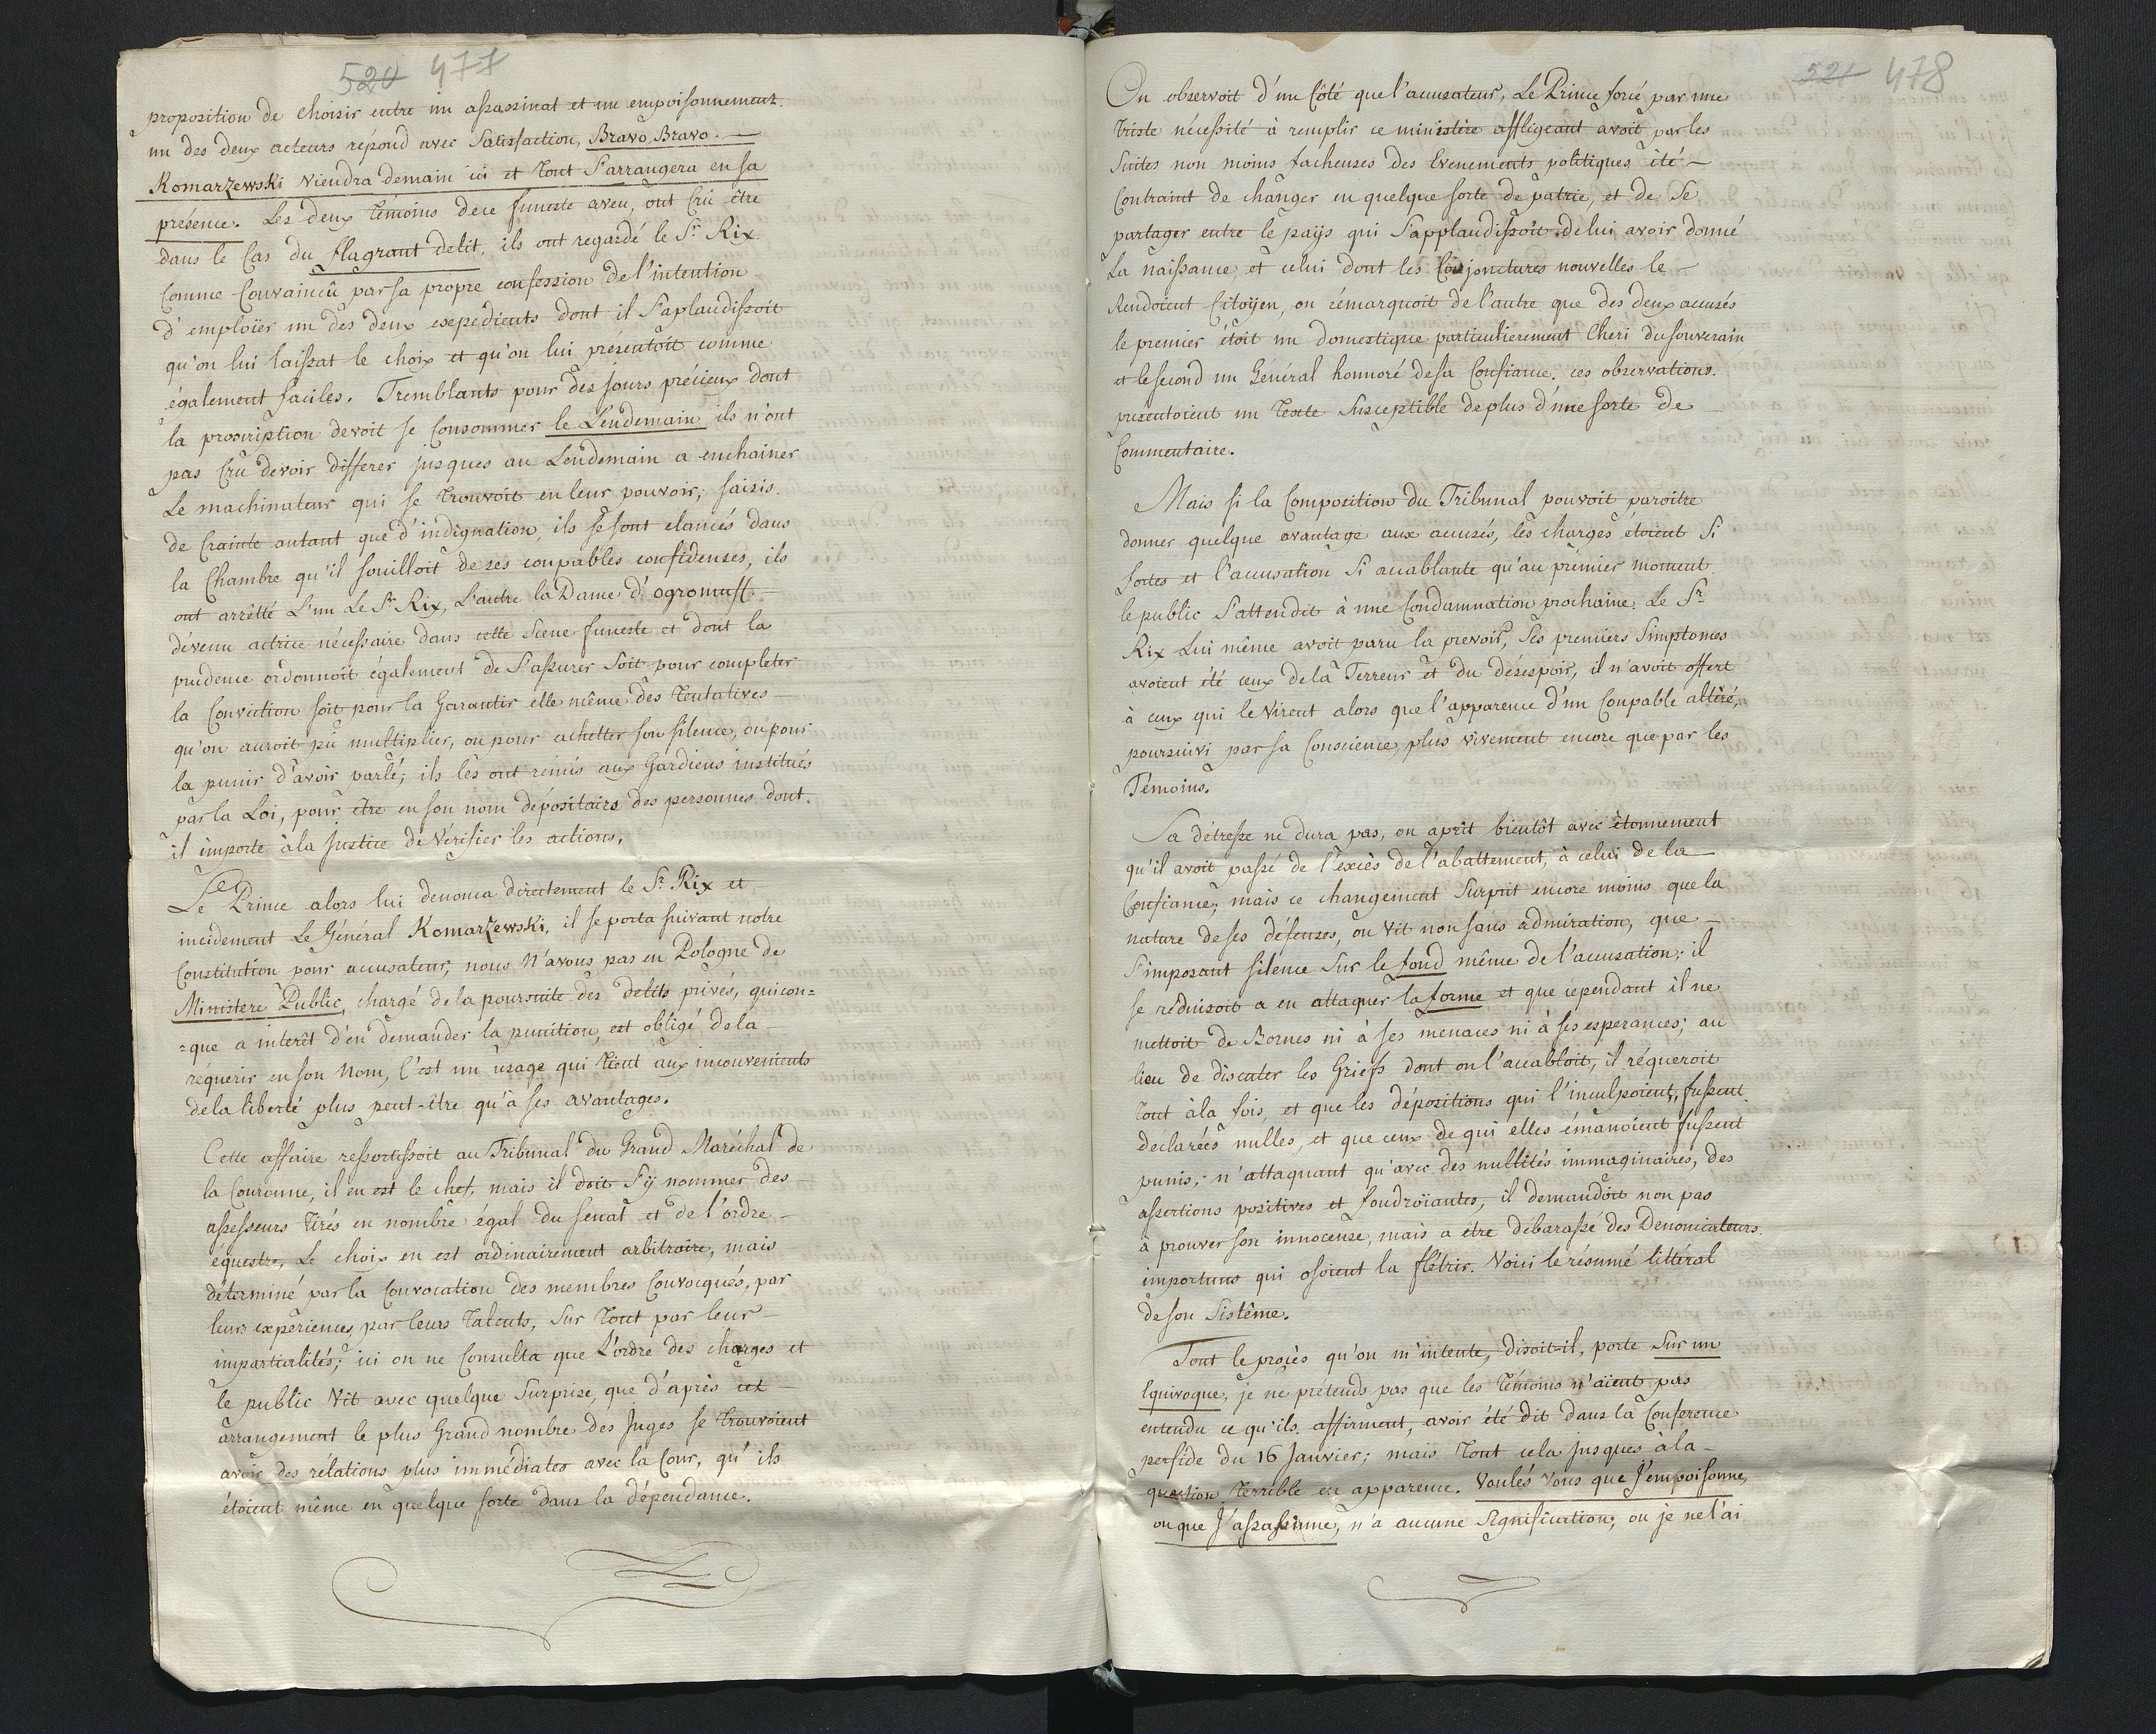 520 477
proposition de choisir entre un assassinat et un empoisonnement.
un des deux acteurs répond avec Satisfaction, Bravo, Bravo. —
Komarzewski viendra demain ici et tout S'arrangera en sa
présence. Les deux témoins de ce funeste aveu, ont crû être
dans le Cas du flagrant delit, ils ont regardé le Sr Rix
Comme Convaincû par sa propre confession de l'intention
d'emploïer un des deux expedients dont il S'aplaudissoit
qu'on lui laissat le choix et qu'on lui présentoit comme
également faciles. Tremblants pour des jours précieux dont
la proscription devoit se Consommer le Lendemain ils n'ont
pas Crû devoir differer jusques au Lendemain a enchainer
Le machinateur qui se trouvoit en leur pouvoir; saisis
de Crainte autant que d'indignation, ils se sont elancés dans
la Chambre qu'il souilloit de ses coupables confidenses, ils
ont arrêtté L'un Le Sr Rix, L'autre la Dame d'ogromuff. —
dévenu actrice nécessaire dans cette Scene funeste et dont la
prudence ordonnoit également de S'assurer Soit pour completer
la Conviction soit pour la Garantir elle même des tentatives —
qu'on auroit pû multiplier, ou pour achetter son silence, ou pour
la punir d'avoir parlé; ils les ont rémis aux Gardiens institués
par la Loi, pour être en son nom dépositaires des personnes dont
il importe à la justice de Vérifier les actions.
Le Prince alors lui denonca directement le Sr Rix et
incidement Le Général Komarzewski, il se porta suivant notre
Constitution pour accusateur; nous N'avons pas en Pologne de
Ministere Public, chargé de la poursuite des delits privés, quicon=
=que a interêt d'en demander la punition, est obligé de la —
réquerir en son Nom, C'est un usage qui tient aux inconvenients
de la liberté plus peut-être qu'à ses avantages.
Cette affaire ressortissoit au Tribunal du Grand Maréchal de
la Couronne, il en est le chef, mais il doit S'ÿ nommer des
assesseurs tirés en nombre égal du senat et de l'ordre —
équestre, Le choix en est ordinairement arbitraire, mais
déterminé par la Convocation des membres Convocqués, par
leurs expériences, par leurs talents, Sur tout par leur —
impartialités; ici on ne Consulta que L'ordre des charges et
le public Vit avec quelque Surprise, que d'après cet —
arrangement le plus Grand nombre des Juges se trouvoient
avoir des rélations plus immédiates avec la Cour, qu'ils
étoient même en quelque sorte dans la dépendance.
521 478
On observoit d'un Côté que l'accusateur, Le Prince forcé par une
triste nécessité à remplir ce ministère affligeant avoit par les
Suites non moins facheuses des Evenements politiques été —
Contraint de changer en quelque sorte de patrie, et de Se
partager entre le païs qui S'applaudissoit de lui avoir donné
La naissance, et celui dont les Conjonctures nouvelles le —
Rendoient Citoÿen, on rémarquoit de l'autre que des deux accusés
le premier étoit un domestique particulierement Cheri du souverain
et le second un Général honnoré de sa Confiance. ces observations
présentoient un texte Susceptible de plus d'une sorte de
Commentaire.
Mais si la Composition du Tribunal pouvoit paroitre
donner quelque avantage aux accusés, les charges étoient Si
fortes et l'accusation Si accablante qu'au premier moment
le public S'attendit à une Condamnation prochaine. Le Sr
Rix Lui même avoit paru la prevoir, Ses premiers Simptomes
avoient été ceux de la Terreur et du désespoir, il n'avoit offert
à ceux qui le virent alors que l'apparence d'un Coupable altéré,
poursuivi par sa Conscience, plus vivement encore que par les
Témoins.
Sa détresse ne dura pas, on aprit bientôt avec étonnement
qu'il avoit passé de l'excès de l'abattement, à celui de la —
Confiance; mais ce changement Surprit encore moins que la
nature de ses défenses, on Vit non sans admiration, que —
S'imposant silence Sur le fond même de l'accusation; il
se réduisoit a en attaquer la forme et que cependant il ne
mettoit de Bornes ni à ses menaces ni à ses esperances; au
lieu de discuter les Griefs dont on l'accabloit, il réqueroit
tout à la fois, et que les dépositions qui l'inculpoient, fussent
déclarées nulles, et que ceux de qui elles émanoient fussent
punis; n'attaquant qu'avec des nullités immaginaires, des
assertions positives et foudroïantes, il demandoit non pas
a prouver son innocense, mais a être débarassé des Denonciateurs
importuns qui osoient la flétrir. Voici le résumé littéral
de son Sistême.
Tout le procès qu'on m'intente, disoit-il, porte Sur un
Equivoque, je ne prétends pas que les témoins n'aient pas
entendu ce qu'ils affirment, avoir été dit dans la Conference
perfide du 16 Janvier; mais tout cela jusques à la —
question terrible en apparence. Voulés vous que J'empoisonne,
ou que J'assassinne, n'a aucune Signification; ou je ne l'ai